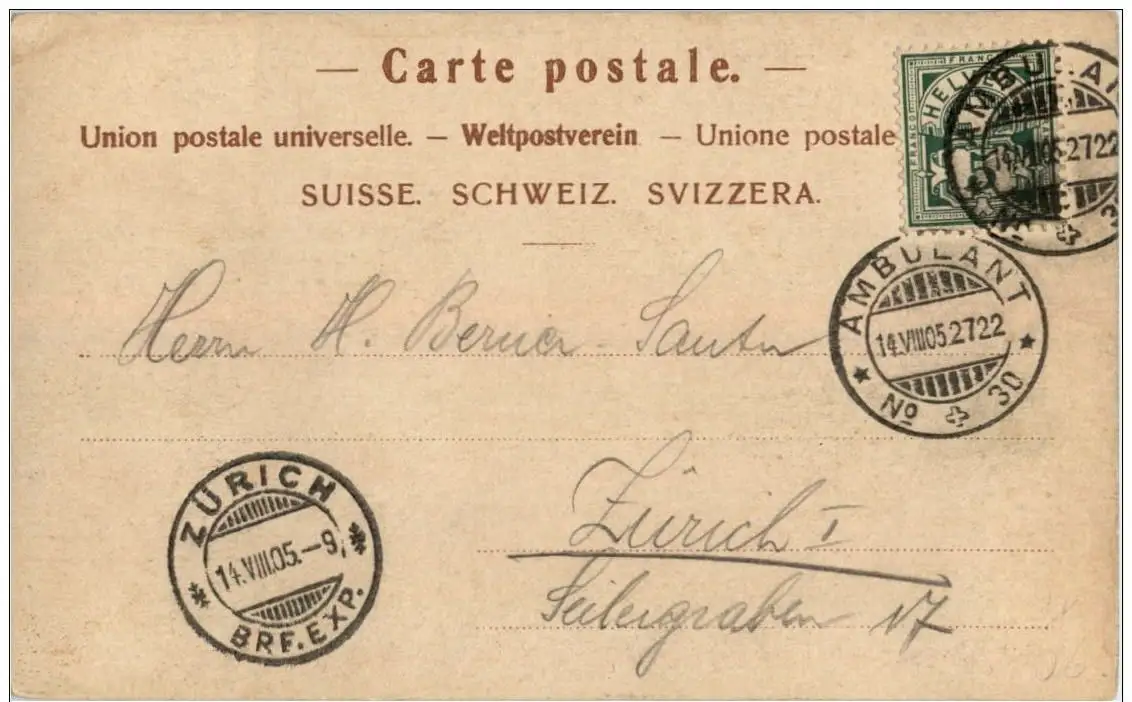 — Carte postale. —
Union postale universelle. — Weltpostverein — Unione postale
SUISSE. SCHWEIZ. SVIZZERA.
FRANCO
FRANCO
HELV
AMBULAN
14.VIII.05.2722
No 3
AMBULANT
14.VIII.05.2722
No 30
Herrn H. Berner
Zürich I
Seilergraben 17
ZÜRICH
14.VIII.05.-9
BRF. EXP.